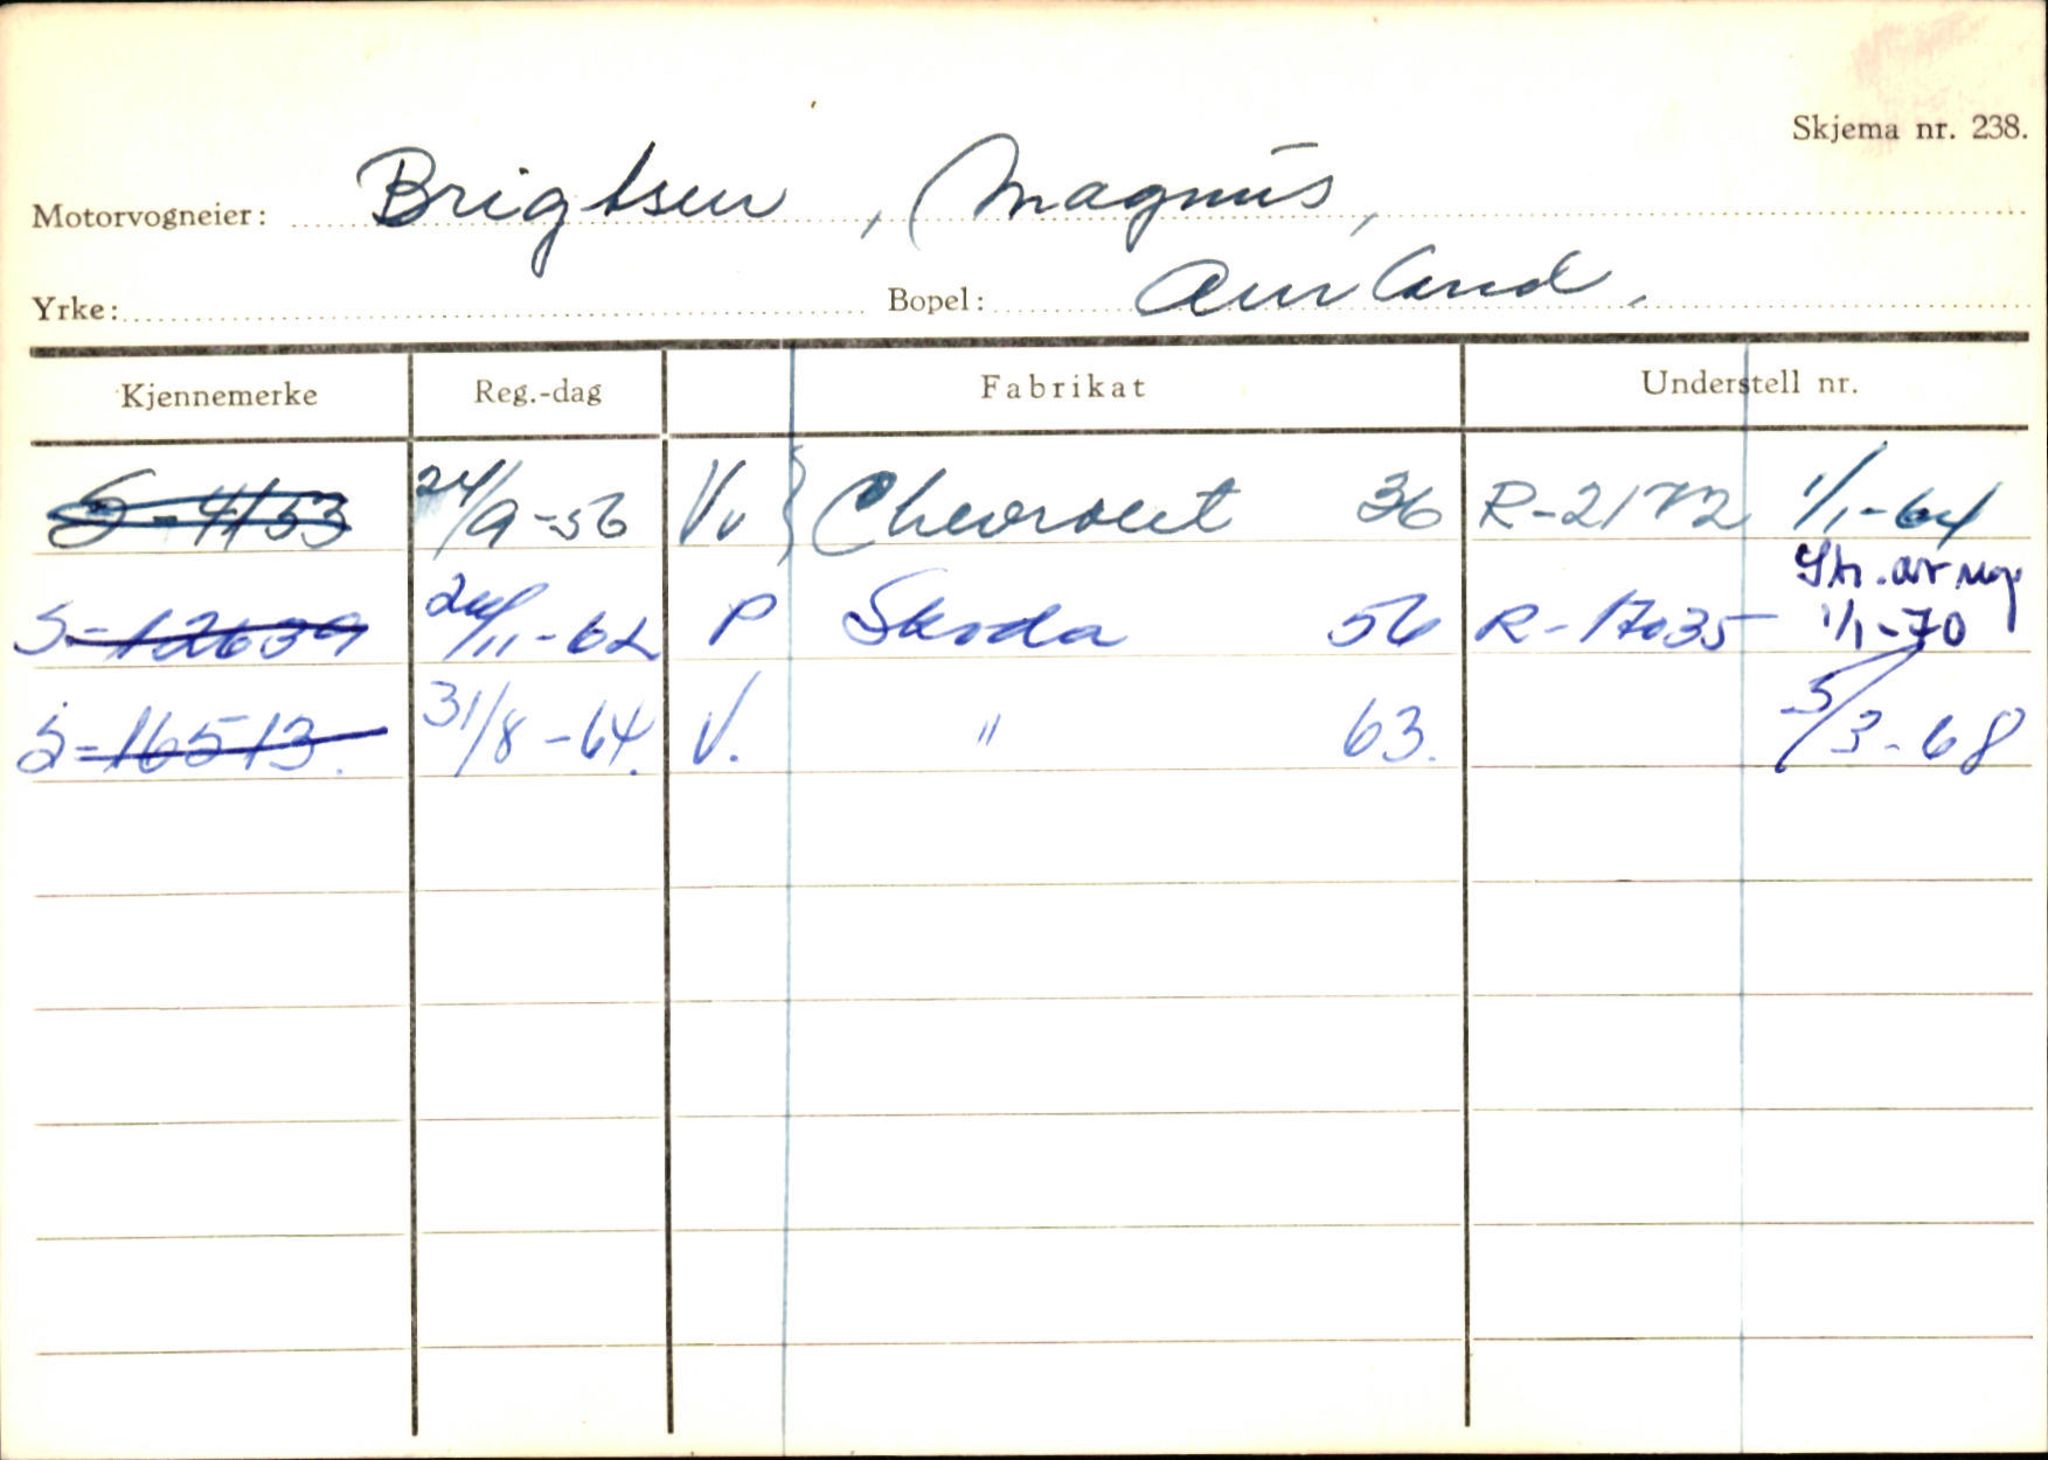 Skjema nr. 238.
Motorvogneier: Brigtsen, Magnus,
Yrke: Bopel: Aurland,
Kjennemerke Reg.-dag Fabrikat Understell nr.
S-4153 24/9-56 Vv } Chevrolet 36 R-2172 1/1-64
Str. av reg
S-12639 24/11-62 P Skoda 56 R-17035 1/1-70
S-16513. 31/8-64. V. " 63. 5/3-68